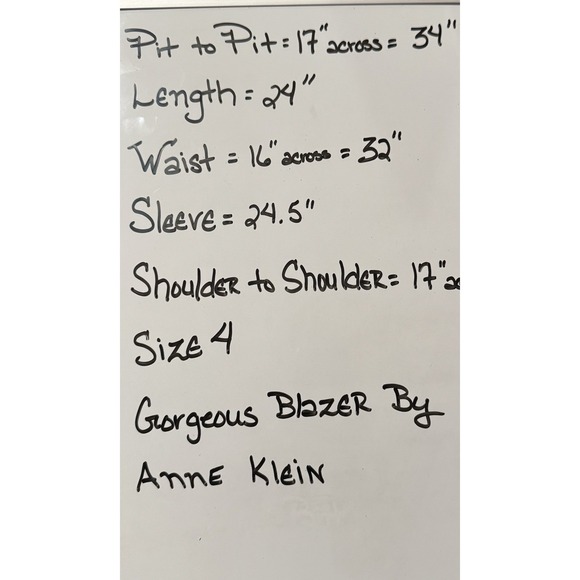 Pit to Pit = 17" across = 34"
Length = 24"
Waist = 16" across = 32"
Sleeve = 24.5"
Shoulder to Shoulder = 17"
Size 4
Gorgeous Blazer By
Anne Klein